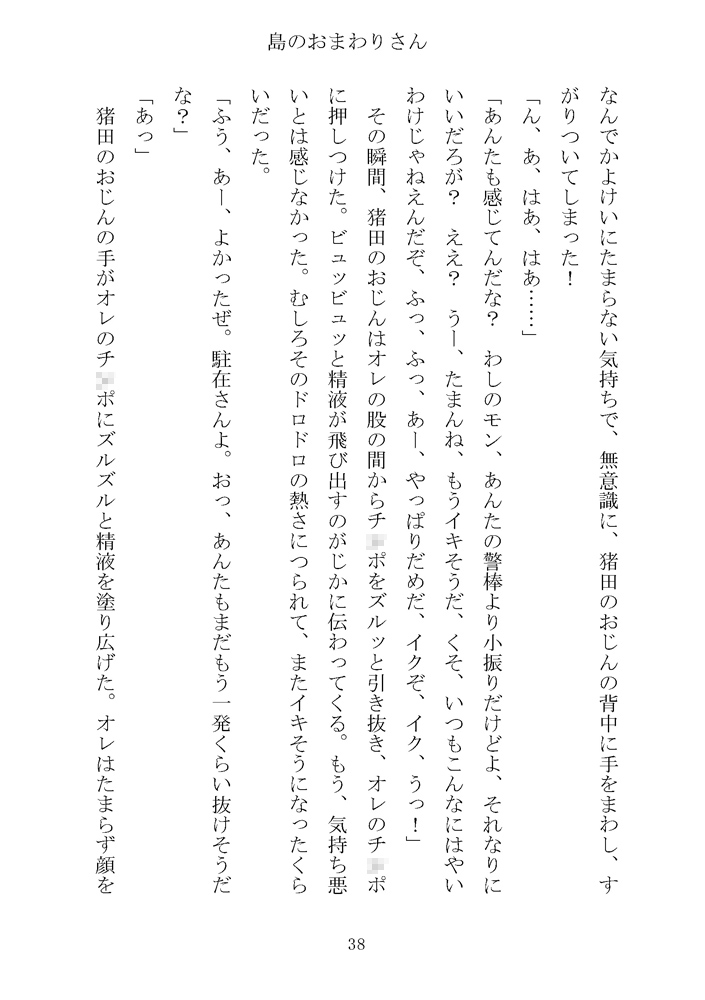 島のおまわりさん
なんでかよけいにたまらない気持ちで、無意識に、猪田のおじんの背中に手をまわし、す
がりついてしまった！
「ん、あ、はあ、はあ……」
「あんたも感じてんだな？　わしのモン、あんたの警棒より小振りだけどよ、それなりに
いいだろが？　ええ？　うー、たまんね、もうイキそうだ、くそ、いつもこんなにはやい
わけじゃねえんだぞ、ふっ、ふっ、あー、やっぱりだめだ、イクぞ、イク、うっ！」
　その瞬間、猪田のおじんはオレの股の間からチ ポをズルッと引き抜き、オレのチ ポ
に押しつけた。ビュッビュッと精液が飛び出すのがじかに伝わってくる。もう、気持ち悪
いとは感じなかった。むしろそのドロドロの熱さにつられて、またイキそうになったくら
いだった。
「ふう、あー、よかったぜ。駐在さんよ。おっ、あんたもまだもう一発くらい抜けそうだ
な？」
「あっ」
　猪田のおじんの手がオレのチ ポにズルズルと精液を塗り広げた。オレはたまらず顔を
38